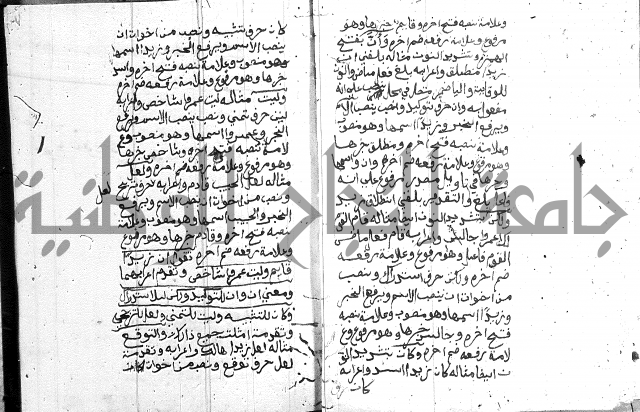 وعلامة نصبه فتح آخره وقايم خبرها وهو
مرفوع وعلامة رفعه ضم آخره وأنّ بفتح
الهمزة وتشديد النون مثاله بلغني أن
زيدا منطلق وإعرابه بلغ فعل ماض والنون
للوقاية واليا ضمير متصل في محل نصب على أنه
مفعول به وأن حرف توكيد ونصب ينصب الاسم
ويرفع الخبر وزيدا اسمها وهو منصوب
وعلامة نصبه فتح آخره ومنطلق خبرها
وهو مرفوع وعلامة رفعه ضم آخره وأن واسمها
وخبرها في تأويل مصدر مرفوع على أنه
فاعل بلغ والتقدير بلغني انطلاق زيد
ولكن بتشديد النون مثاله قام القوم
لكن عمرا جالس وإعرابه قام فعل ماض
القوم فاعل وهو مرفوع وعلامة رفعه
ضم آخره ولكن حرف استدراك ونصب
من اخوات ان ينصب الاسم ويرفع الخبر
وعمرا اسمها وهو منصوب وعلامة نصبه
فتح آخره وجالس خبرها وهو مرفوع وعلامة
رفعه ضم آخره وكأن بتشديد النون
أيضا مثاله كان زيدا اسد وإعرابه
كان حرف
كان حرف تشبيه ونصب من اخوات ان
ينصب الاسم ويرفع الخبر وزيدا اسمها
وهو منصوب وعلامة نصبه فتح آخره واسد
خبرها وهو مرفوع وعلامة رفعه ضم آخره
وليت مثاله ليت عمرا شاخص وإعرابه
ليت حرف تمني ونصب ينصب الاسم ويرفع
الخبر وعمرا اسمها وهو منصوب و
علامة نصبه فتح آخره وشاخص خبرها
وهو مرفوع وعلامة رفعه ضم آخره ولعل
مثاله لعل الحبيب قادم وإعرابه لعل حرف ترجي
لعل
ونصب من اخوات ان ينصب الاسم ويرفع
الخبر والحبيب اسمها وهو منصوب وعلامة
نصبه فتح آخره وقادم خبرها وهو مرفوع
وعلامة رفعه ضم آخره تقول ان زيدا
قايم وليت عمرا شاخص وتقدم اعرابهما
ومعنى ان وأن للتوكيد ولكن للاستدراك
وكان للتشبيه وليت للتمني ولعل للترجي
وتقدمت امثلة جميع ذلك والتوقع
مثاله لعل زيدا هالك وإعرابه وتقدمة
لعل حرف توقع ونصب من اخوات
جامعة النجاح الوطنية